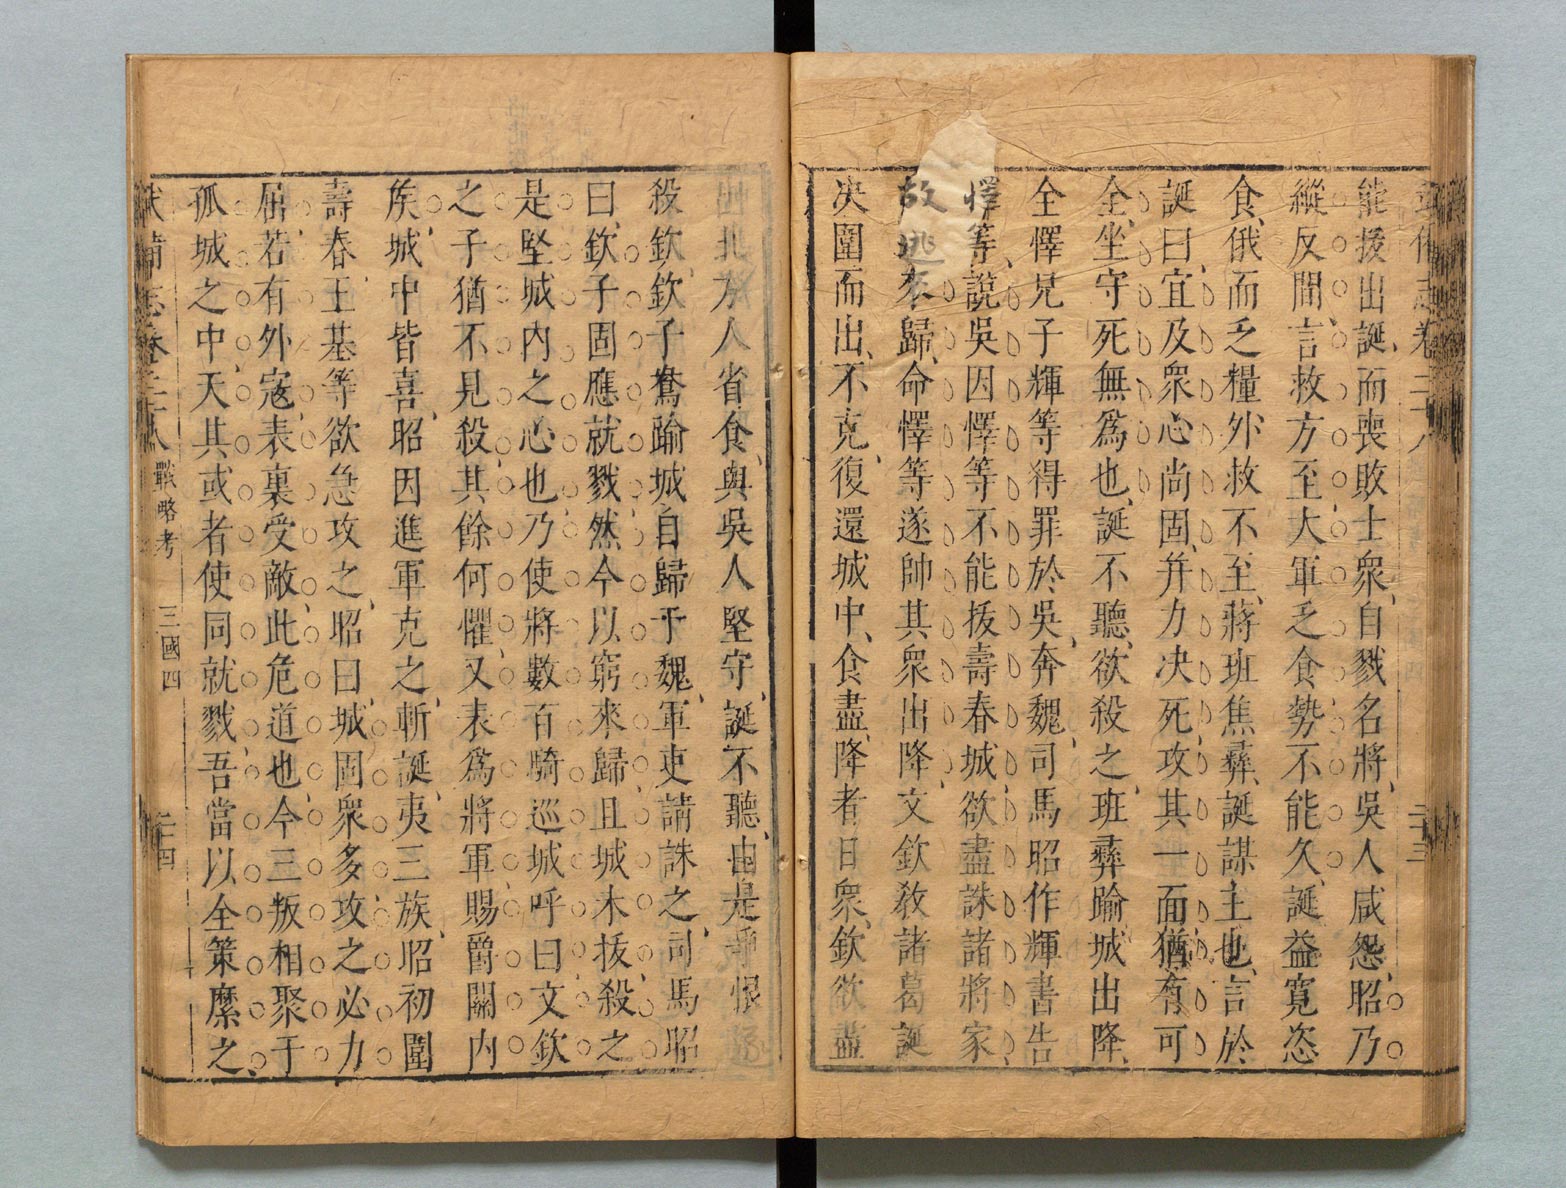 武備志卷二十八 二十三
能拔出誕而喪敗士衆自戮名將吳人咸怨昭乃
縱反間言救方至大軍乏食勢不能久誕益寬恣
食俄而乏糧外救不至蔣班焦彝誕謀主也言於
誕曰宜及衆心尚固并力决死攻其一面猶有可
全坐守死無爲也誕不聽欲殺之班彝踰城出降
全懌兄子輝等得罪於吳奔魏司馬昭作輝書告
懌等說吳因懌等不能拔壽春城欲盡誅諸將家
故逃來歸命懌等遂帥其衆出降文欽敎諸葛誕
決圍而出不克復還城中食盡降者日衆欽欲盡
出北方人省食與吳人堅守誕不聽由是爭恨
殺欽欽子鴦踰城自歸于魏軍吏請誅之司馬昭
曰欽子固應就戮然今以窮來歸且城未拔殺之
是堅城内之心也乃使將數百騎巡城呼曰文欽
之子猶不見殺其餘何懼又表爲將軍賜爵關内
矦城中皆喜昭因進軍克之斬誕夷三族昭初圍
壽春王基等欲急攻之昭曰城固衆多攻之必力
屈若有外寇表裏受敵此危道也今三叛相聚于
孤城之中天其或者使同就戮吾當以全策縻之
武備志卷二十八 戰略考 三國四 二十四